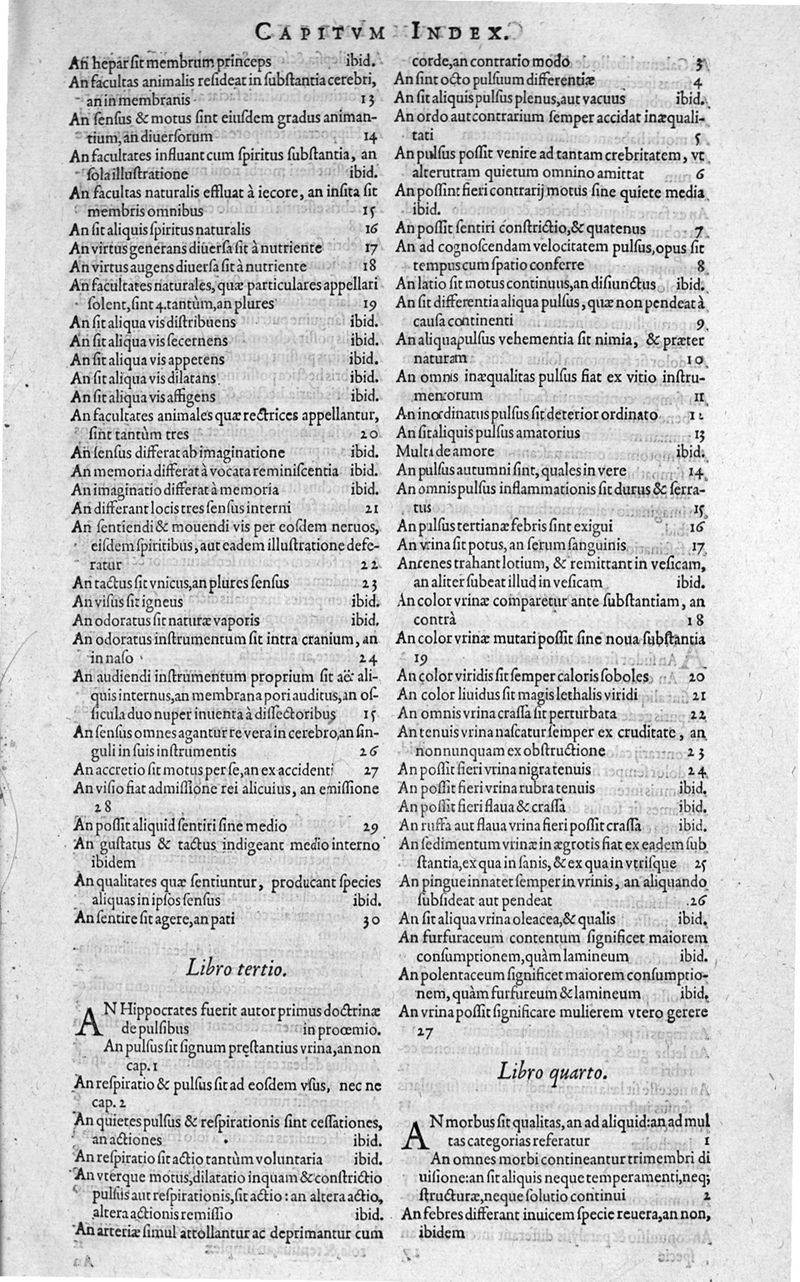 CAPITVM INDEX.
An hepar ſit membrum princeps ibid.
An facultas animalis reſideat in ſubſtantia cerebri,
an in membranis 13
An ſenſus & motus ſint eiuſdem gradus animan-
tium, an diuerſorum 14
An facultates influant cum ſpiritus ſubſtantia, an
ſola illuſtratione ibid.
An facultas naturalis effluat à iecore, an inſita ſit
membris omnibus 15
An ſit aliquis ſpiritus naturalis 16
An virtus generans diuerſa ſit à nutriente 17
An virtus augens diuerſa ſit à nutriente 18
An facultates naturales, quæ particulares appellari
ſolent, ſint 4. tantùm, an plures 19
An ſit aliqua vis diſtribuens ibid.
An ſit aliqua vis ſecernens ibid.
An ſit aliqua vis appetens ibid.
An ſit aliqua vis dilatans ibid.
An ſit aliqua vis affigens ibid.
An facultates animales quæ rectrices appellantur,
ſint tantùm tres 20
An ſenſus differat ab imaginatione ibid.
An memoria differat à vocata reminiſcentia ibid.
An imaginatio differat à memoria ibid.
An differant locis tres ſenſus interni 21
An ſentiendi & mouendi vis per eoſdem neruos,
eiſdem ſpiritibus, aut eadem illuſtratione defe-
ratur 22
An tactus ſit vnicus, an plures ſenſus 23
An viſus ſit igneus ibid.
An odoratus ſit naturæ vaporis ibid.
An odoratus inſtrumentum ſit intra cranium, an
in naſo 24
An audiendi inſtrumentum proprium ſit aër ali-
quis internus, an membrana pori auditus, an oſ-
ſicula duo nuper inuenta à diſſectoribus 15
An ſenſus omnes agantur re vera in cerebro, an ſin-
guli in ſuis inſtrumentis 26
An accretio ſit motus per ſe, an ex accidenti 27
An viſio fiat admiſſione rei alicuius, an emiſſione
28
An poſſit aliquid ſentiri ſine medio 29
An guſtatus & tactus indigeant medio interno
ibidem
An qualitates quæ ſentiuntur, producant ſpecies
aliquas in ipſos ſenſus ibid.
An ſentire ſit agere, an pati 30
Libro tertio.
AN Hippocrates fuerit autor primus doctrinæ
de pulſibus in proœmio.
An pulſus ſit ſignum pręſtantius vrina, an non
cap. 1
An reſpiratio & pulſus ſit ad eoſdem vſus, nec ne
cap. 2
An quietes pulſus & reſpirationis ſint ceſſationes,
an actiones ibid.
An reſpiratio ſit actio tantùm voluntaria ibid.
An vterque motus, dilatatio inquam & conſtrictio
pulſus aut reſpirationis, ſit actio: an altera actio,
altera actionis remiſſio ibid.
An arteriæ ſimul attollantur ac deprimantur cum
corde, an contrario modo 3
An ſint octo pulſuum differentiæ 4
An ſit aliquis pulſus plenus, aut vacuus ibid.
An ordo aut contrarium ſemper accidat inæquali-
tati 5
An pulſus poſſit venire ad tantam crebritatem, vt
alterutram quietum omnino amittat 6
An poſſint fieri contrarij motus ſine quiete media
ibid.
An poſſit ſentiri conſtrictio, & quatenus 7
An ad cognoſcendam velocitatem pulſus, opus ſit
tempus cum ſpatio conferre 8
An latio ſit motus continuus, an diſiunctus ibid.
An ſit differentia aliqua pulſus, quæ non pendeat à
cauſa continenti 9
An aliqua pulſus vehementia ſit nimia, & præter
naturam 10
An omnis inæqualitas pulſus fiat ex vitio inſtru-
mentorum 11
An inordinatus pulſus ſit deterior ordinato 12
An ſit aliquis pulſus amatorius 13
Multa de amore ibid.
An pulſus autumni ſint, quales in vere 14
An omnis pulſus inflammationis ſit durus & ſerra-
tus 15
An pulſus tertianæ febris ſint exigui 16
An vrina ſit potus, an ſerum ſanguinis 17
An renes trahant lotium, & remittant in veſicam,
an aliter ſubeat illud in veſicam ibid.
An color vrinæ comparetur ante ſubſtantiam, an
contrà 18
An color vrinæ mutari poſſit ſine noua ſubſtantia
19
An color viridis ſit ſemper caloris ſoboles 20
An color liuidus ſit magis lethalis viridi 21
An omnis vrina craſſa ſit perturbata 22
An tenuis vrina naſcatur ſemper ex cruditate, an
nonnunquam ex obſtructione 23
An poſſit fieri vrina nigra tenuis 24
An poſſit fieri vrina rubra tenuis ibid.
An poſſit fieri flaua & craſſa ibid.
An ruffa aut flaua vrina fieri poſſit craſſa ibid.
An ſedimentum vrinæ in ægrotis fiat ex eadem ſub
ſtantia, ex qua in ſanis, & ex qua in vtriſque 25
An pingue innatet ſemper in vrinis, an aliquando
ſubſideat aut pendeat 26
An ſit aliqua vrina oleacea, & qualis ibid.
An furfuraceum contentum ſignificet maiorem
conſumptionem, quàm lamineum ibid.
An polentaceum ſignificet maiorem conſumptio-
nem, quàm furfureum & lamineum ibid.
An vrina poſſit ſignificare mulierem vtero gerere
27
Libro quarto.
AN morbus ſit qualitas, an ad aliquid: an ad mul
tas categorias referatur 1
An omnes morbi contineantur trimembri di
uiſione: an ſit aliquis neque temperamenti, neq;
ſtructuræ, neque ſolutio continui 2
An febres differant inuicem ſpecie reuera, an non,
ibidem